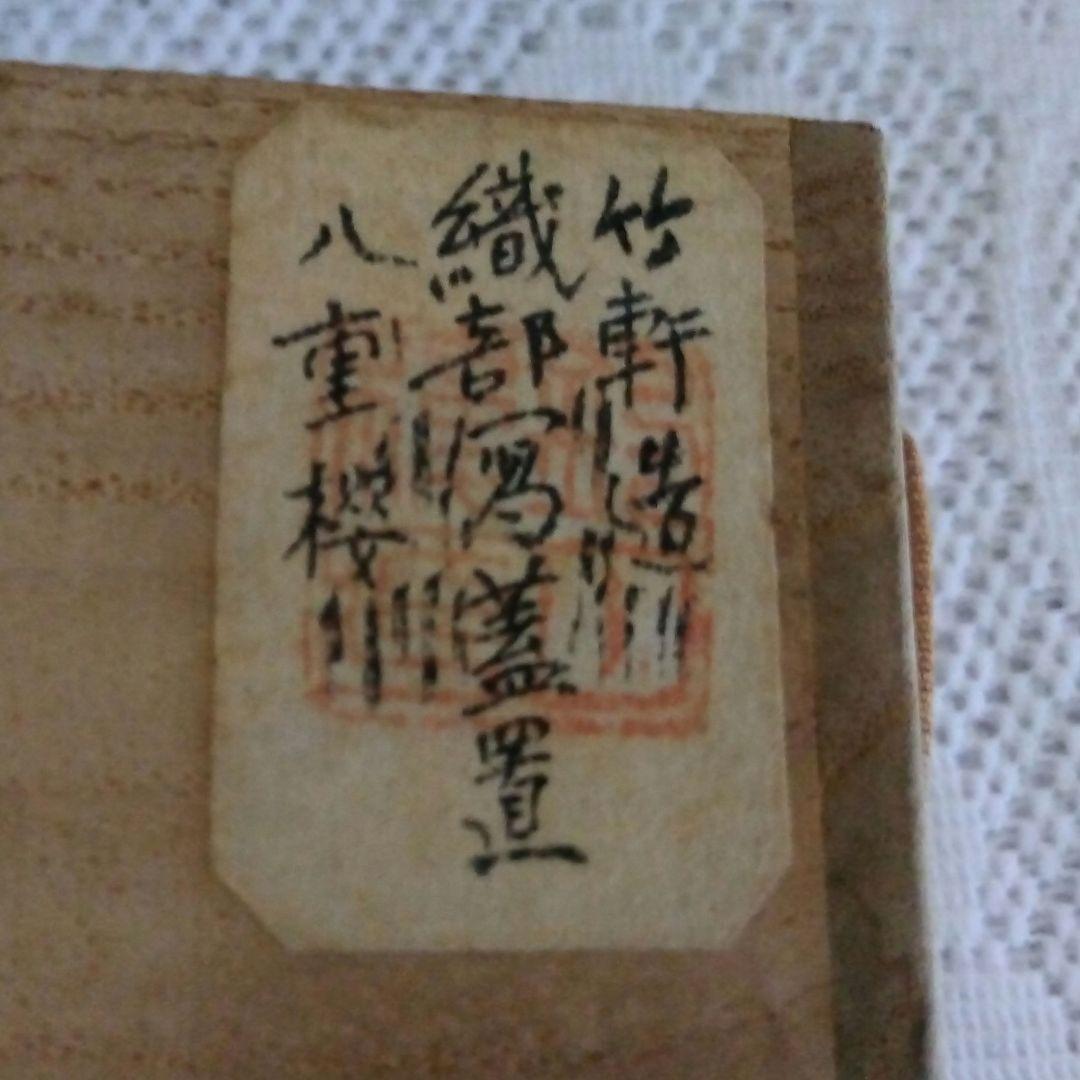 竹軒造
織部寫蓋置
八重櫻